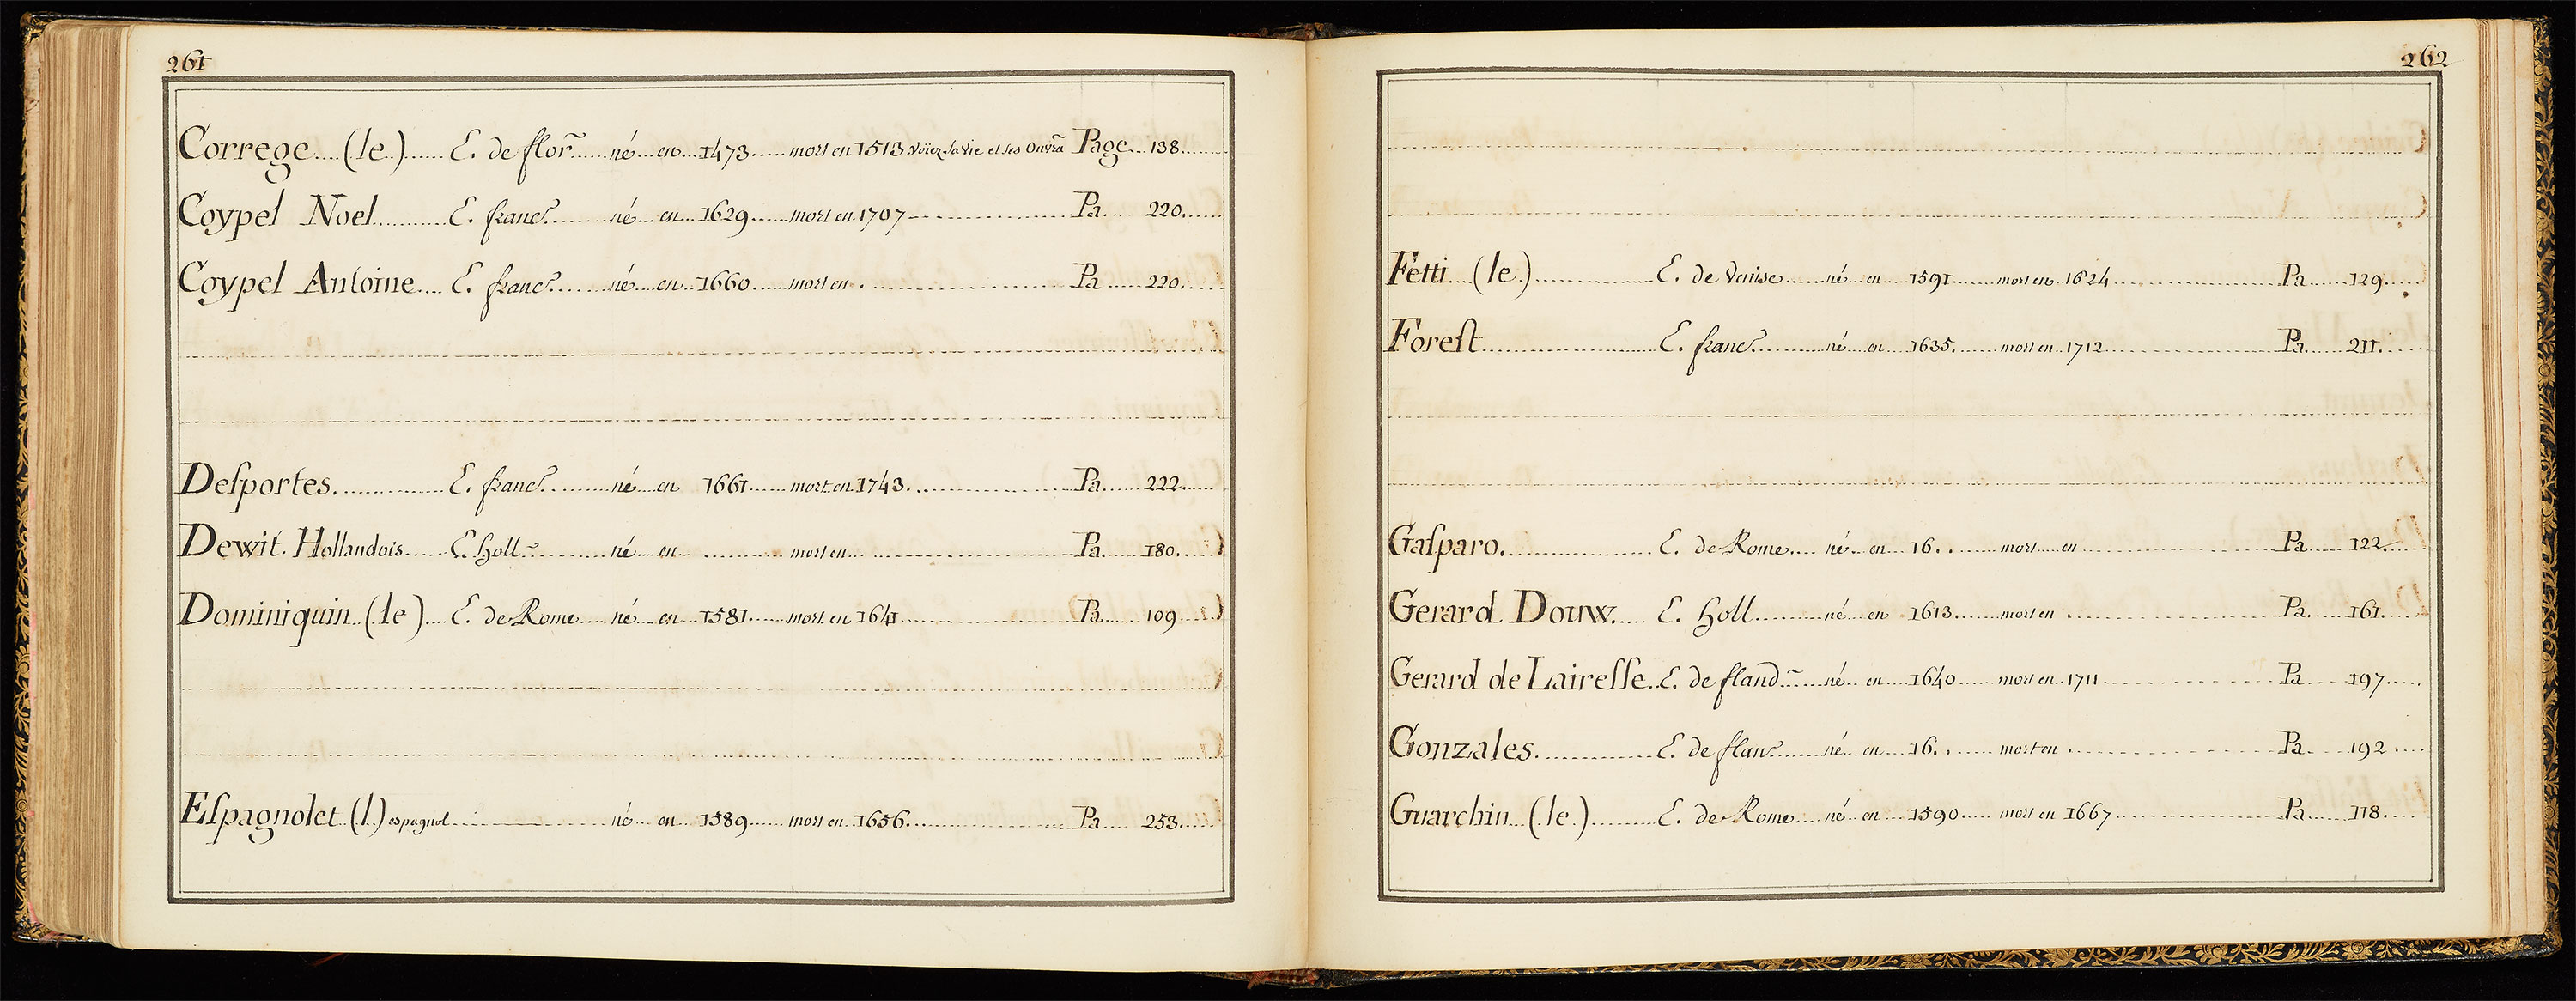 261
Correge (le) E. de flor̃ né en 1473 mort en 1513 Voiez Sa Vie et ses Ouvrã Page 138
Coypel Noel E. franc.s né en 1629 mort en 1707 Pa 220.
Coypel Antoine E. franc.s né en 1660 mort en Pa 220.
Deſportes. E. franc.s né en 1661 mort en 1743. Pa 222.
Dewit. Hollandois E. Holl.e né en mort en Pa 180.
Dominiquin (le) E. de Rome né en 1581. mort en 1641 Pa 109
Eſpagnolet (l) espagnol né en 1589 mort en 1656. Pa 253.
262
Fetti (le) E. de Venise né en 1591 mort en 1624 Pa 129.
Foreſt E. franc.s né en 1635. mort en 1712 Pa 211.
Gaſparo. E. de Rome né en 16.. mort en Pa 122.
Gerard Douw. E. Holl né en 1613 mort en Pa 161.
Gerard de Laireſſe E. de fland.~ né en 1640 mort en 1711 Pa 197
Gonzales. E. de flan.s né en 16.. mort en Pa 192
Guarchin (le) E. de Rome né en 1590 mort en 1667 Pa 118.